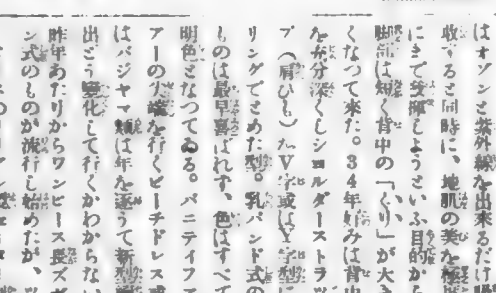 はオゾンと紫外線を出来るだけ吸
收すると同時に、地肌の美を極度
にまで發揮しようといふ目的から
脚部は短く背中の「くり」が大き
くなつて來た。34年好みは背中
を充分深くしシヨルダーストラツ
プ（肩ひも）をV字或はY字型に
リングでとめた型。乳バンド式の
ものは最早喜ばれず、色はすべて
明色となつてゐる。バニテイフエ
アーの尖端を行くビーチドレス或
はパジヤマ類は年を逐うて新型
出どう變化して行くかわからない
昨年あたりからワンピース長ズボ
ン式のものが流行し始めたが、